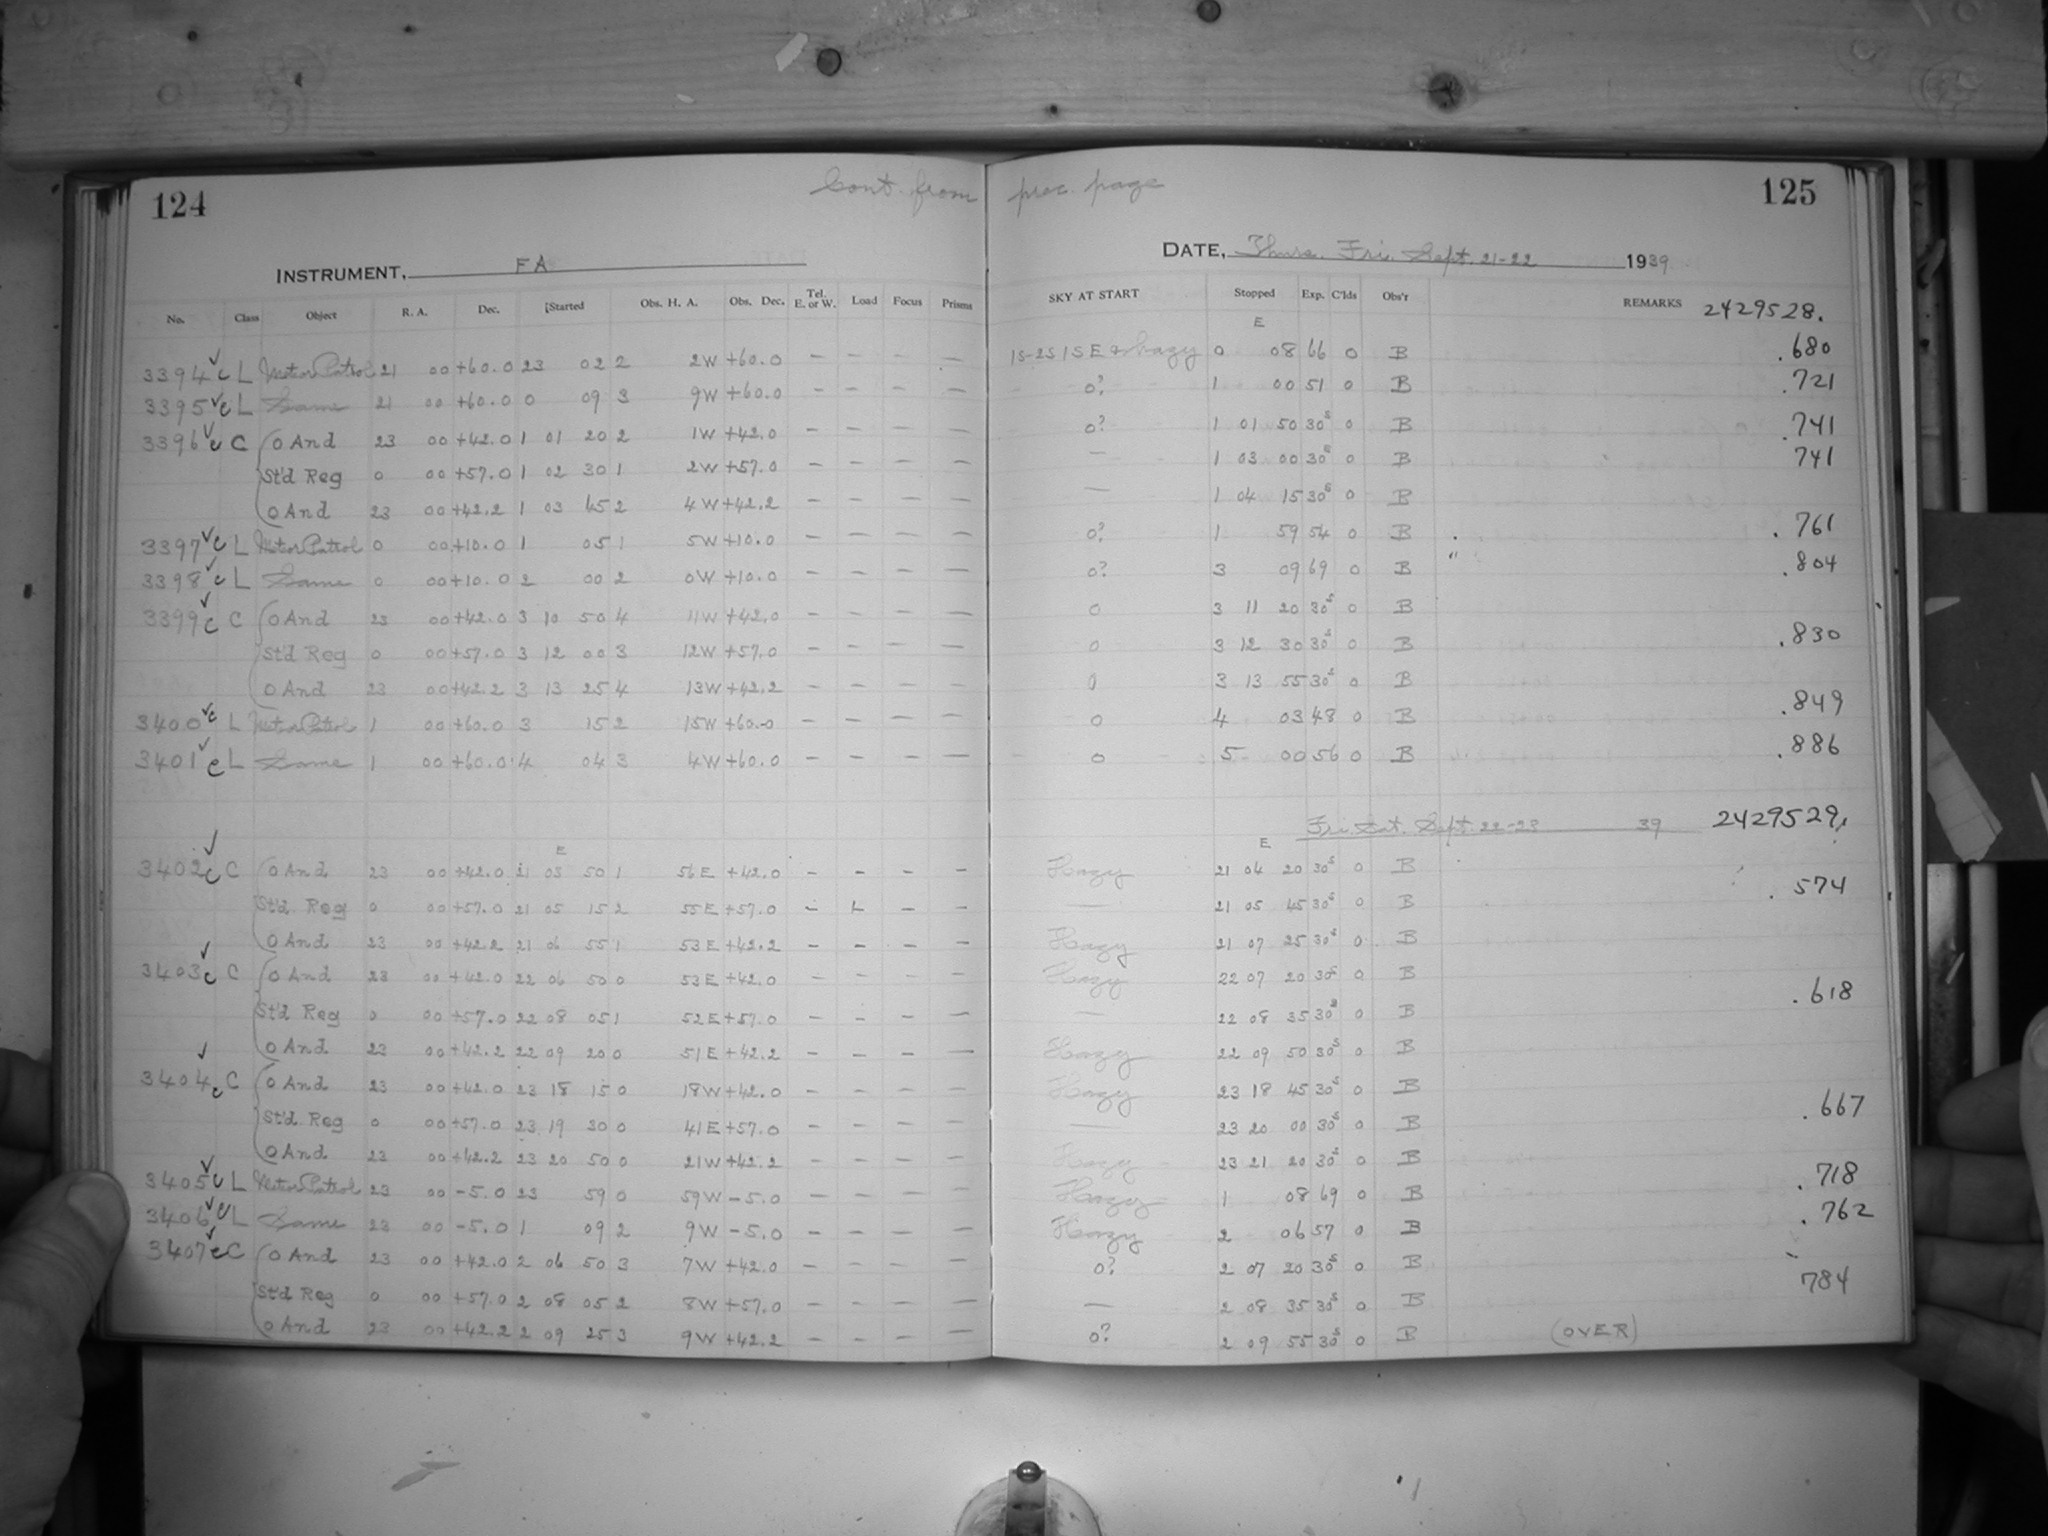 124 Cont. from prec. page 125
INSTRUMENT, FA DATE, Thurs. Fri. Sept. 21-22 1939
No. Class Object R. A. Dec. Started Obs. H. A. Obs. Dec. Tel. E. or W. Load Focus Prisms SKY AT START Stopped Exp. C'lds Obs'r REMARKS 2429528.
E
3394 ✓ c L Motor Patrol 21 00 +60.0 23 02 2 2W +60.0 — — — — 1S-2S 1S E & hazy 0 08 66 0 B .680
3395 ✓ c L Same 21 00 +60.0 0 09 3 9W +60.0 — — — — 0? 1 00 51 0 B .721
3396 ✓ c C O And 23 00 +42.0 1 01 20 2 1W +42.0 — — — — 0? 1 01 50 30s 0 B .741
St'd Reg 0 00 +57.0 1 02 30 1 2W +57.0 — — — — — 1 03 00 30s 0 B 741
O And 23 00 +42.2 1 03 45 2 4W +42.2 — — — — — 1 04 15 30s 0 B
3397 ✓ c L Motor Patrol 0 00 +10.0 1 05 1 5W +10.0 — — — — 0? 1 59 54 0 B .761
3398 ✓ c L Same 0 00 +10.0 2 00 2 0W +10.0 — — — — 0? 3 09 69 0 B " .804
3399 ✓ c C O And 23 00 +42.0 3 10 50 4 11W +42.0 — — — — 0 3 11 20 30s 0 B
St'd Reg 0 00 +57.0 3 12 00 3 12W +57.0 — — — — 0 3 12 30 30s 0 B .830
O And 23 00 +42.2 3 13 25 4 13W +42.2 — — — — 0 3 13 55 30s 0 B
3400 ✓ c L Motor Patrol 1 00 +60.0 3 15 2 15W +60.0 — — — — 0 4 03 48 0 B .849
3401 ✓ c L Same 1 00 +60.0 4 04 3 4W +60.0 — — — — 0 5 00 56 0 B .886
Fri. Sat. Sept. 22-23 39 2429529.
E E
3402 ✓ c C O And 23 00 +42.0 21 03 50 1 56E +42.0 — — — — Hazy 21 04 20 30s 0 B
St'd Reg 0 00 +57.0 21 05 15 2 55E +57.0 — — — — — 21 05 45 30s 0 B .574
O And 23 00 +42.2 21 06 55 1 53E +42.2 — — — — Hazy 21 07 25 30s 0 B
3403 ✓ c C O And 23 00 +42.0 22 06 50 0 53E +42.0 — — — — Hazy 22 07 20 30s 0 B
St'd Reg 0 00 +57.0 22 08 05 1 52E +57.0 — — — — — 22 08 35 30s 0 B .618
O And 23 00 +42.2 22 09 20 0 51E +42.2 — — — — Hazy 22 09 50 30s 0 B
3404 ✓ c C O And 23 00 +42.0 23 18 15 0 18W +42.0 — — — — Hazy 23 18 45 30s 0 B
St'd Reg 0 00 +57.0 23 19 30 0 41E +57.0 — — — — — 23 20 00 30s 0 B .667
O And 23 00 +42.2 23 20 50 0 21W +42.2 — — — — Hazy 23 21 20 30s 0 B
3405 ✓ c L Motor Patrol 23 00 -5.0 23 59 0 59W -5.0 — — — — Hazy 1 08 69 0 B .718
3406 ✓ c L Same 23 00 -5.0 1 09 2 9W -5.0 — — — — Hazy 2 06 57 0 B .762
3407 ✓ c C O And 23 00 +42.0 2 06 50 3 7W +42.0 — — — — 0? 2 07 20 30s 0 B
St'd Reg 0 00 +57.0 2 08 05 2 8W +57.0 — — — — — 2 08 35 30s 0 B 784
O And 23 00 +42.2 2 09 25 3 9W +42.2 — — — — 0? 2 09 55 30s 0 B (OVER)